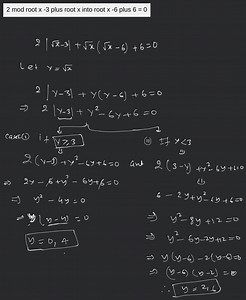 2 mod root x -3 plus root x into root x -6 plus 6 = 0
2|√x-3| + √x(√x-6) + 6 = 0
Let y = √x
2|y-3| + y(y-6) + 6 = 0
⇒ 2|y-3| + y² - 6y + 6 = 0
case① if y ≥ 3
2(y-3) + y² - 6y + 6 = 0
⇒ 2y - 6 + y² - 6y + 6 = 0
⇒ y² - 4y = 0
⇒ y(y-4) = 0
y = 0, 4
② If y < 3
2(3-y) + y² - 6y + 6 = 0
6 - 2y + y² - 6y + 6 = 0
⇒ y² - 8y + 12 = 0
⇒ y² - 6y - 2y + 12 = 0
⇒ y(y-6) - 2(y-6) = 0
⇒ (y-6)(y-2) = 0
∴ y = 2, 6